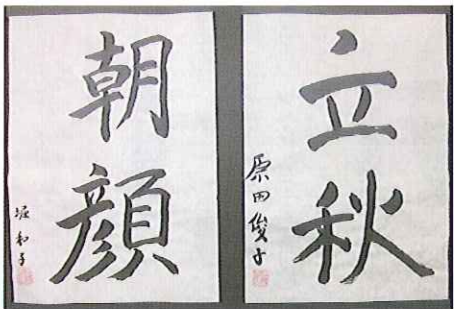 立秋
原田俊子
朝顔
堀和子